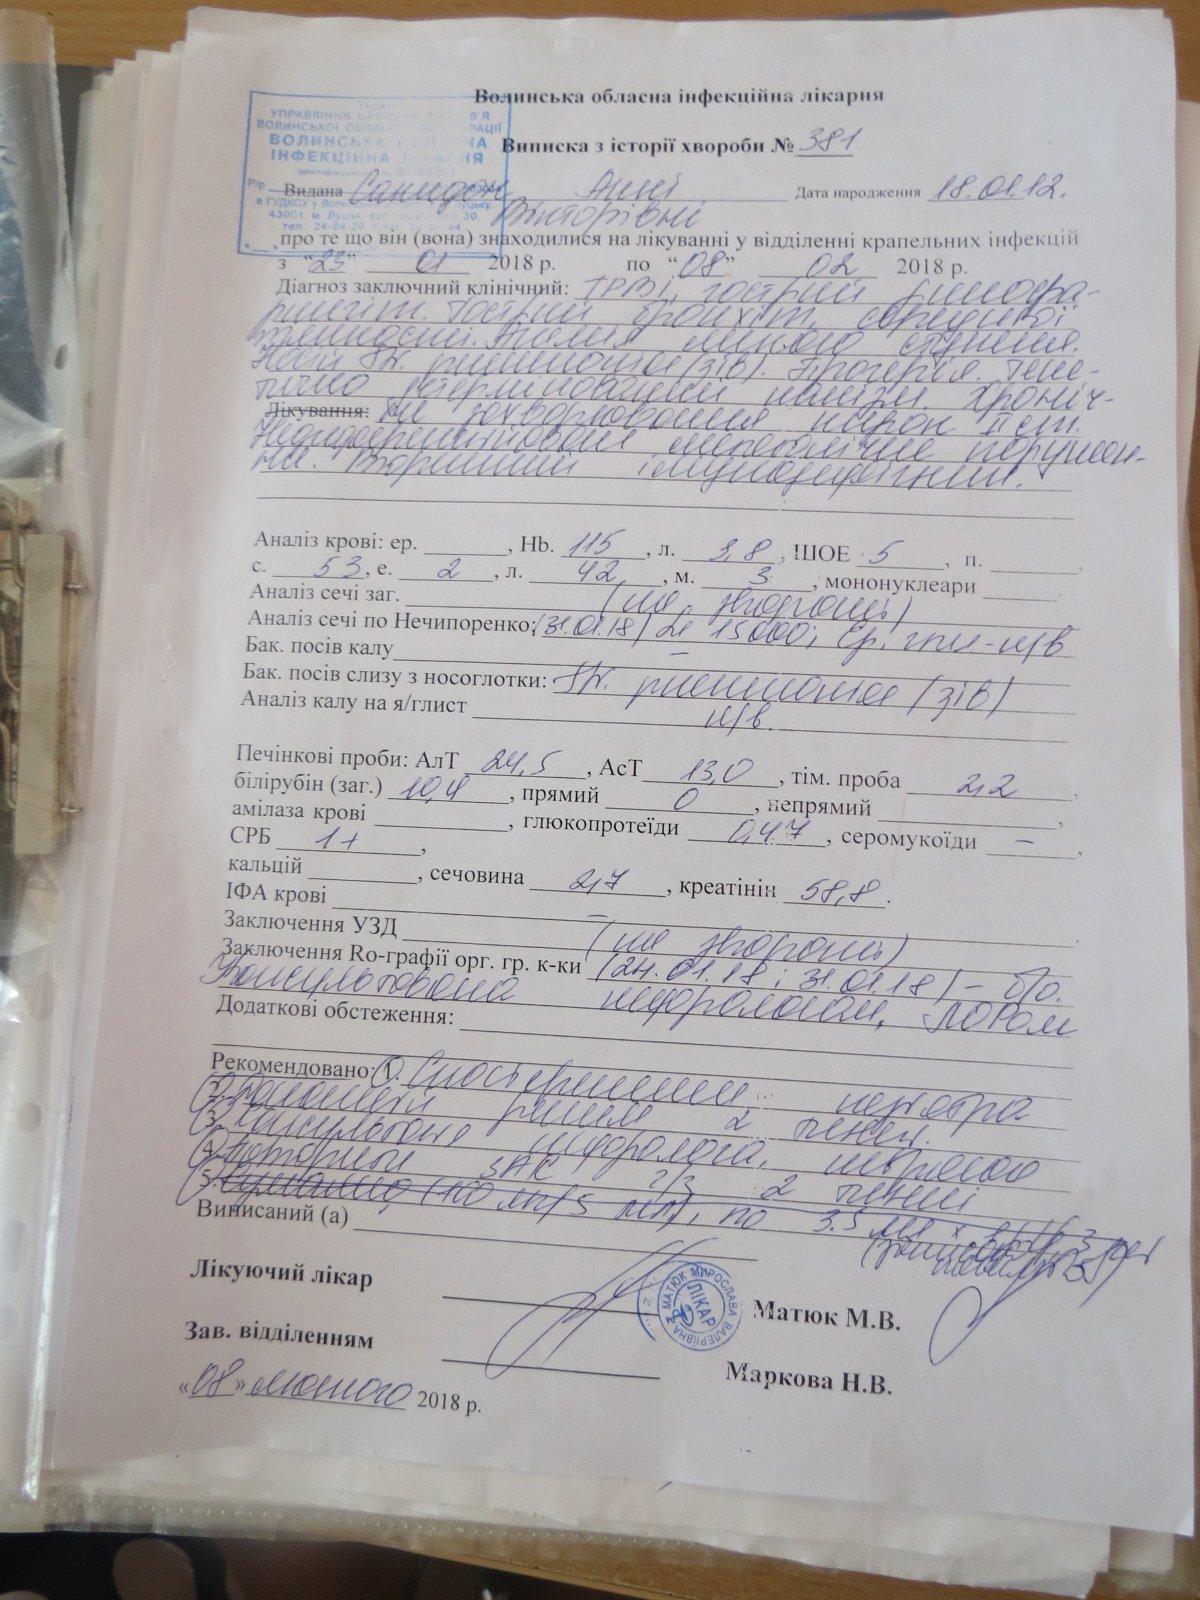 УПРАВЛІННЯ
ВОЛИНСЬКОЇ
ВОЛИНСЬКА
ІНФЕКЦІЙНА ЛІКАРНЯ
43001, м. Луцьк
Волинська обласна інфекційна лікарня
Виписка з історії хвороби № 381
Видана Анні Дата народження 18.01.12.
Вікторівні
про те що він (вона) знаходилися на лікуванні у відділенні крапельних інфекцій
з “23” 01 2018 р. по “08” 02 2018 р.
Діагноз заключний клінічний: ГРВІ, гострий ринофа-
рингіт. Гострий бронхіт, середньої
тяжкості. Анемія легкого ступеня.
Носій Kl. pneumoniae (зів). Прогерія. Гене-
тично детермінований нанізм. Хроніч-
Лікування: не захворювання нирок ІІ ст.
Недиференційоване метаболічне порушен-
ня. Вторинний імунодефіцит.
Аналіз крові: ер. , Hb. 115, л. 3,8, ШОЕ 5, п.
с. 53, е. 2, л. 42, м. 3, мононуклеари
Аналіз сечі заг. (на звороті)
Аналіз сечі по Нечипоренко: (31.01.18) 15000; н/в
Бак. посів калу –
Бак. посів слизу з носоглотки: Kl. pneumoniae (зів)
Аналіз калу на я/глист н/в.
Печінкові проби: АлТ 24,5, АсТ 13,0, тім. проба 2,2
білірубін (заг.) 10,4, прямий 0, непрямий ,
амілаза крові , глюкопротеїди 0,47, серомукоїди –,
СРБ 1+,
кальцій , сечовина 2,7, креатінін 58,8.
ІФА крові –
Заключення УЗД (на звороті)
Заключення Ro-графії орг. гр. к-ки (24.01.18; 31.01.18) – б/о.
Консультована нефрологом, ЛОРом
Додаткові обстеження:
Рекомендовано: 1. Спостереження педіатра
2. режим 2 тижні.
3. Консультація нефролога,
4. Повторний ЗАК 2 тижні
5. (100 мл/5 мл), по 3.5 мл х
Виписаний (а)
Лікуючий лікар Матюк М.В.
МАТЮК МИРОСЛАВА ВАЛЕРІЇВНА
ЛІКАР
Зав. відділенням Маркова Н.В.
«08» лютого 2018 р.